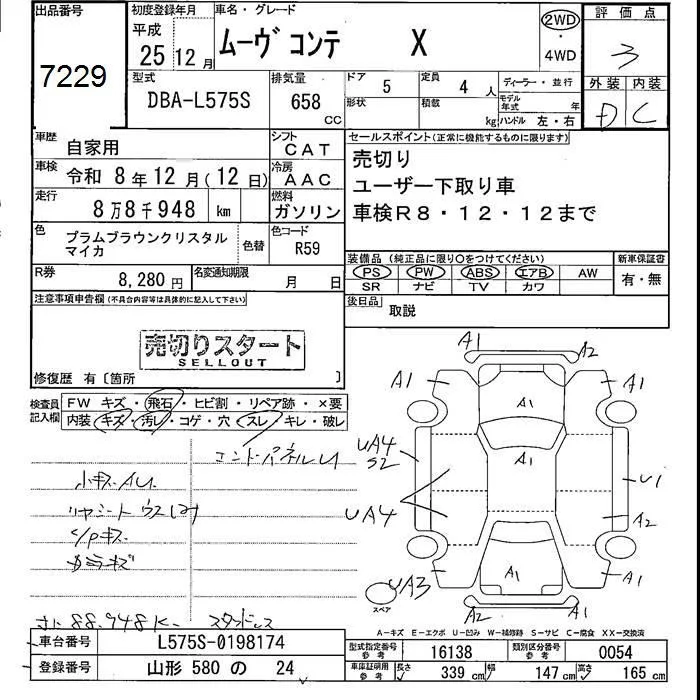 出品番号
7229
初度登録年月
平成
25 12 月
車名・グレード
ムーヴ コンテ X
2WD
・
4WD
評価点
3
外装 内装
D C
型式
DBA-L575S
排気量
658
CC
ドア 5
形状
定員 4 人
積載 kg
ディーラー・並行
モデル年式 年
ハンドル 左・右
車歴 自家用
シフト CAT
車検 令和 8年12月(12日)
冷房 AAC
走行 8万8千948 km
燃料 ガソリン
色 プラムブラウンクリスタル
マイカ
色替
色コード R59
R券 8,280 円
名変通知期限 月 日
セールスポイント(正常に機能するものに限ります)
売切り
ユーザー下取り車
車検R8・12・12まで
装備品 (純正品に限り○をつけてください)
PS PW ABS エアB AW
SR ナビ TV カワ
新車保証書
有・無
後日品 取説
注意事項申告欄 (不具合内容等は具体的に記入して下さい)
売切りスタート
SELLOUT
修復歴 有〔箇所 〕
検査員
記入欄
FW キズ・飛石・ヒビ割・リペア跡・×要
内装 キズ・汚レ・コゲ・穴・スレ・キレ・破レ
エンドパネルU
小キズAU.
A1
A2
A1
A1
A1
A1
UA4
S2
UA4
U1
A2
UA3
A1
A1
A2
A1
スペア
88,948K
A-キズ E-エクボ U-凹み W-補修跡 S-サビ C-腐食 XX-交換済
車台番号 L575S-0198174
登録番号 山形 580 の 24
型式指定番号
参考
16138
類別区分番号
参考
0054
車庫証明用
参考
長さ 339 cm 幅 147 cm 高さ 165 cm